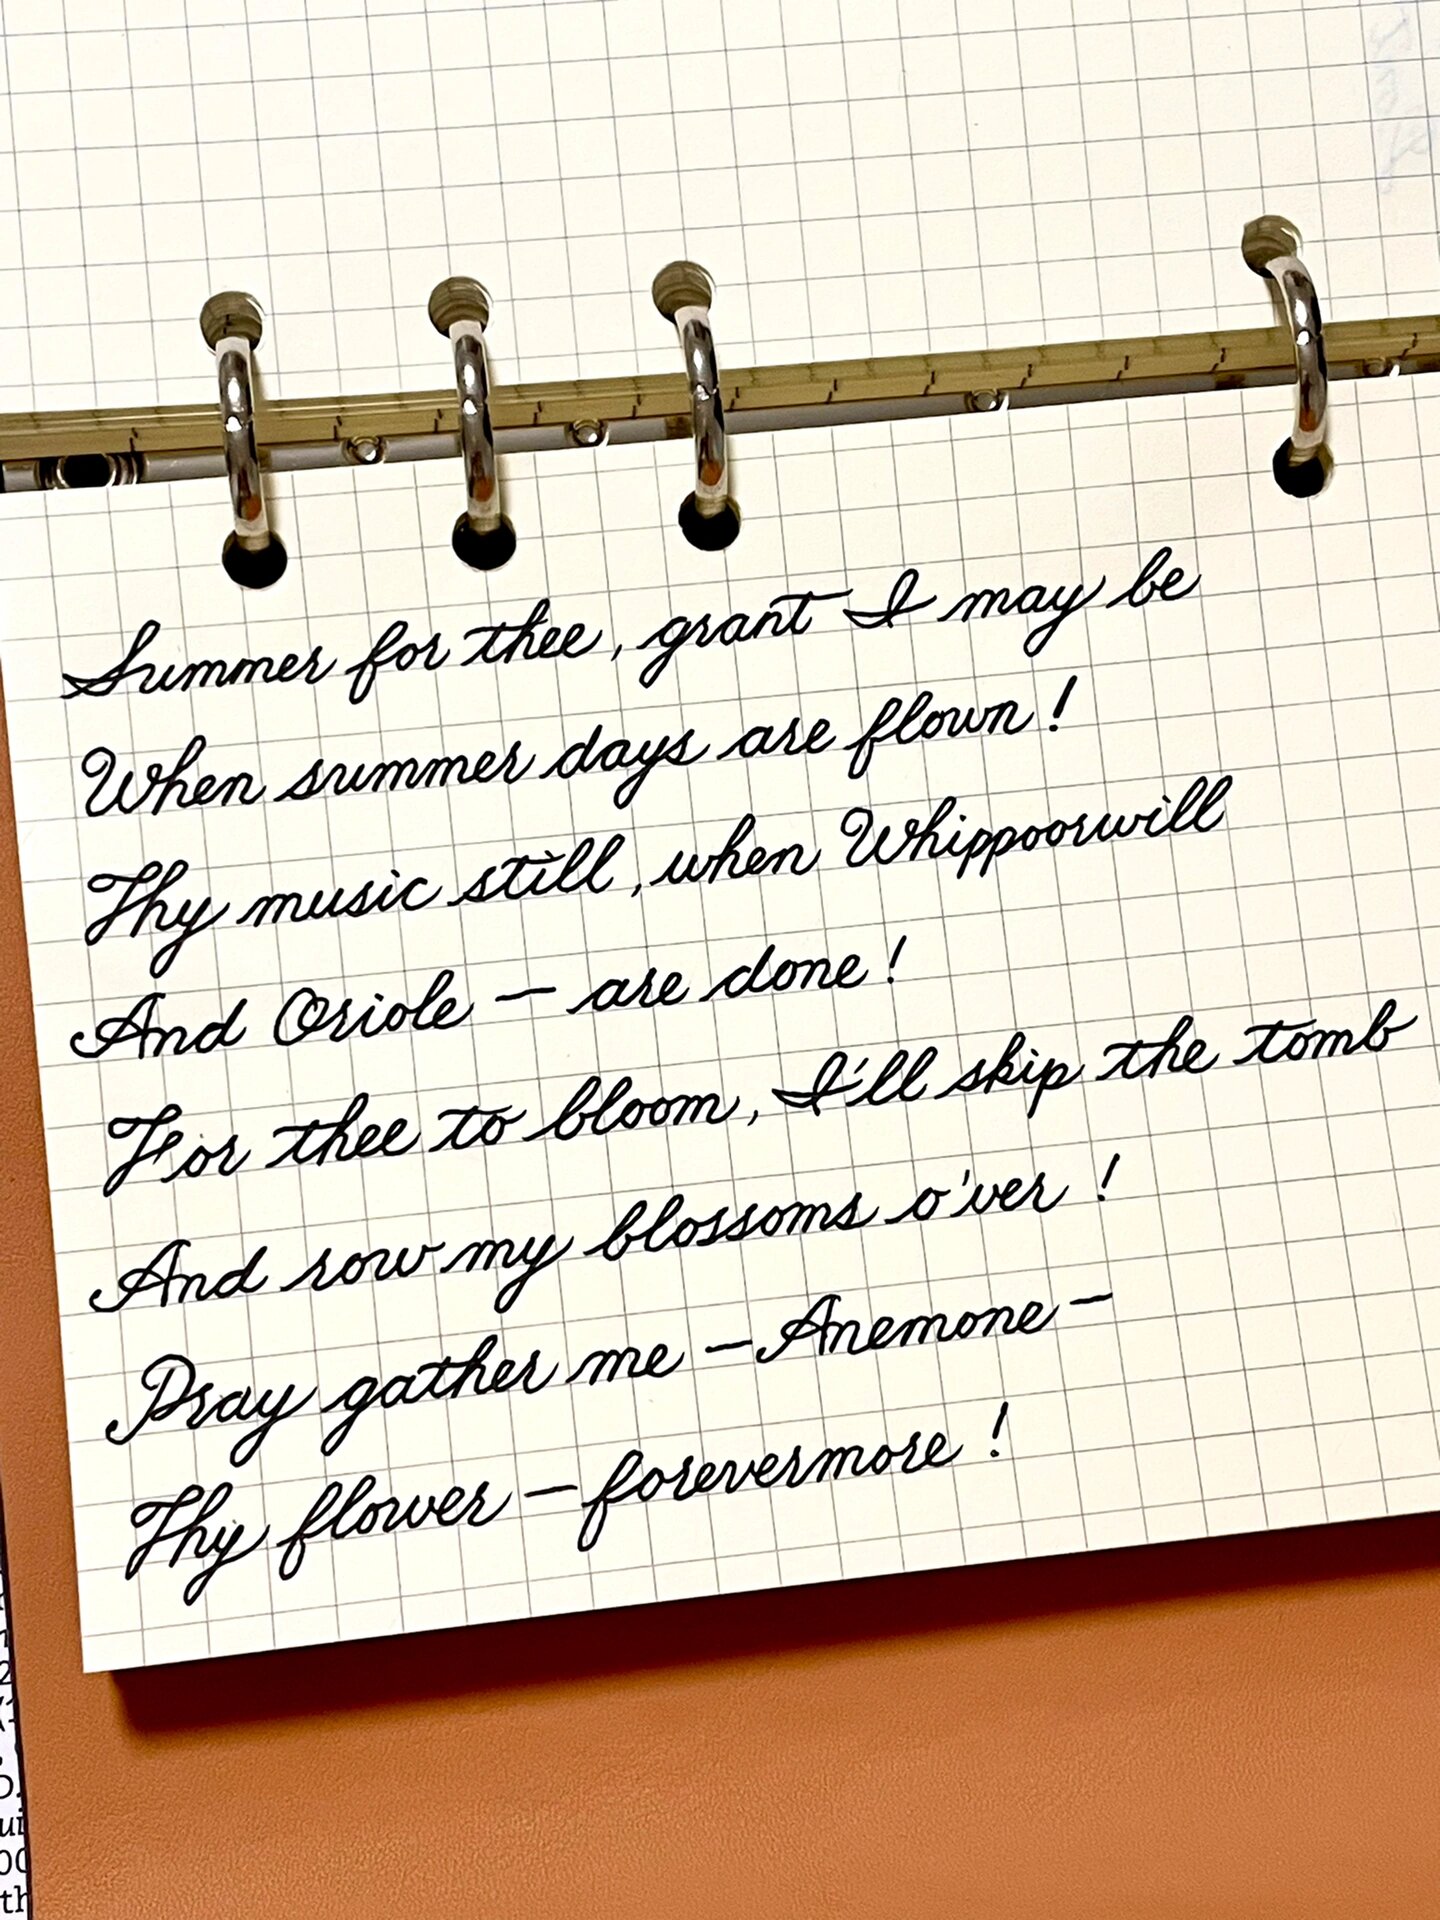 Summer for thee, grant I may be
When summer days are flown!
Thy music still, when Whippoorwill
And Oriole — are done!
For thee to bloom, I'll skip the tomb
And row my blossoms o'ver!
Pray gather me — Anemone —
Thy flower — forevermore!